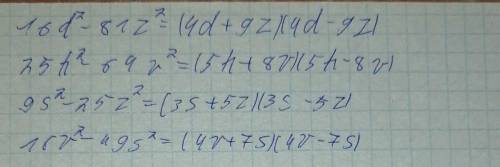 16d²-81z²=(4d+9z)(4d-9z)
25h²-64v²=(5h+8v)(5h-8v)
9s²-25z²=(3s+5z)(3s-5z)
16v²-49s²=(4v+7s)(4v-7s)